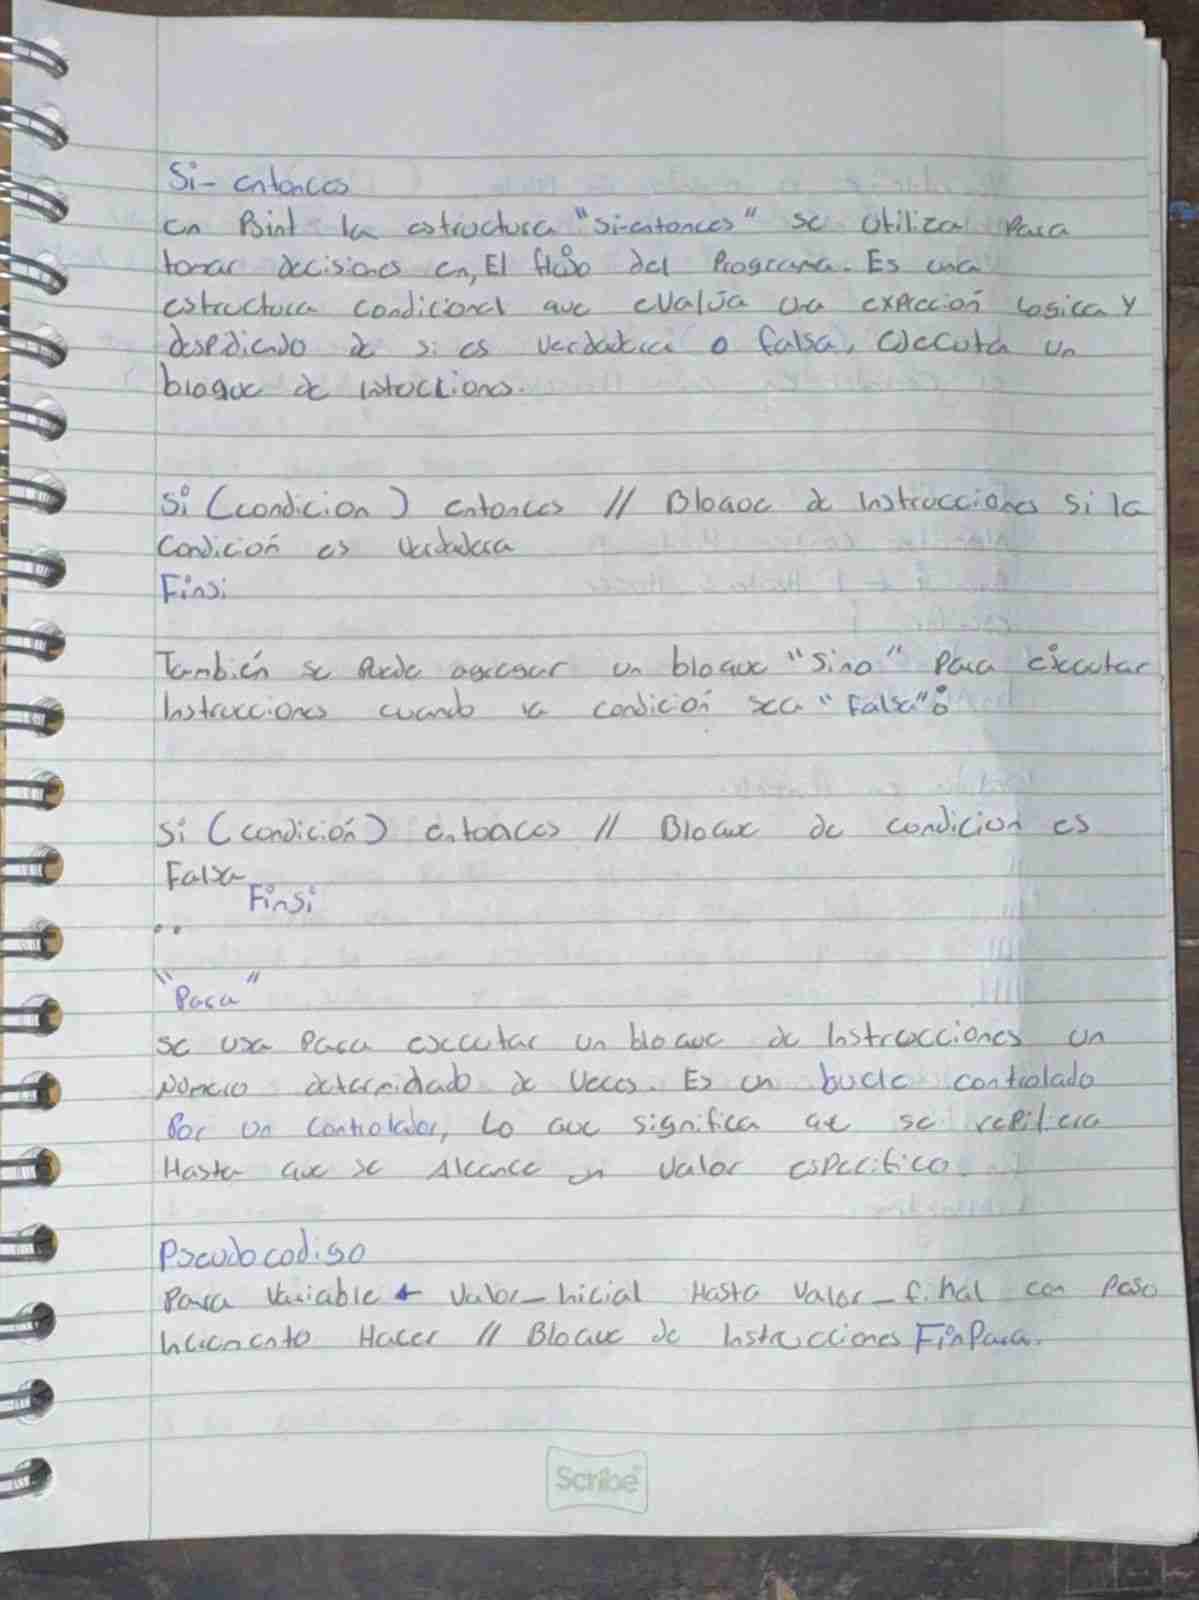 Si- entonces
en Psint la estructura "si-entonces" se utiliza para
tomar decisiones en, El flujo del Programa. Es una
estructura condicional que evalúa una expreción logica y
despidiendo de si es verdadera o falsa, ejecuta un
bloque de intucciones.
Si (condicion) entonces // Bloque de Instrucciones si la
condición es verdadera
Finsi
También se puede agregar un bloque "sino" para ejecutar
Instrucciones cuando la condición sea "falsa":
Si (condición) entonces // Bloque de condicion es
Falsa
Finsi
..
"Para"
se usa para ejecutar un bloque de Instrucciones un
número determidado de veces. Es un bucle controlado
por un controlador, lo que significa que se repitera
Hasta que se Alcance un valor especifico.
Pseudocodigo
Para Variable ← Valor_Inicial Hasta Valor_final con paso
Incremento Hacer // Bloque de Instrucciones FinPara.
Scribe